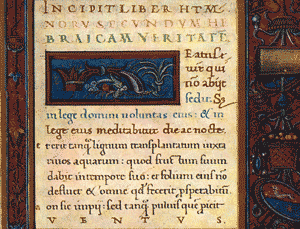 INCIPIT LIBER HYM
NORUM SECUNDUM HE
BRAICAM VERITATE
Eatus
uir qui
no abijt
sedit. Sз
in lege domini voluntas eius: & in
lege eius meditabitur die ac nocte.
erit tanq3 lignum transplantatum iuxta
riuos aquarum: quod fructum suum
dabit in tempore suo: et folium eius no
defluet & omne qd fecerit, psperabitur
on sic impij: sed tanq3 puluis que picit
VENTUS